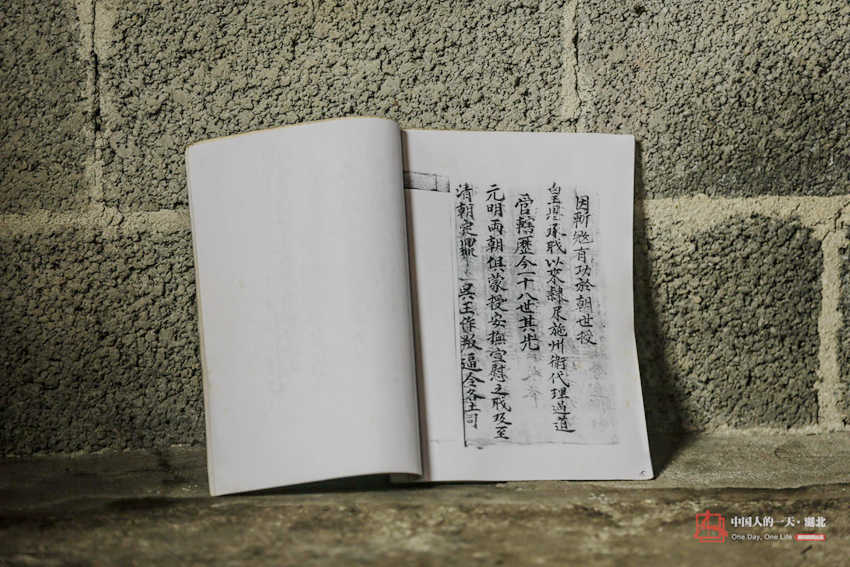 因斬有功於朝世授
皇恩承職以來隸屬施州衛代理過道
官轄歷今一十八世其先
元明兩朝俱蒙授安撫宣慰之職及至
清朝定鼎吳王作叛逼令各土司
中国人的一天·湖北
One Day, One Life